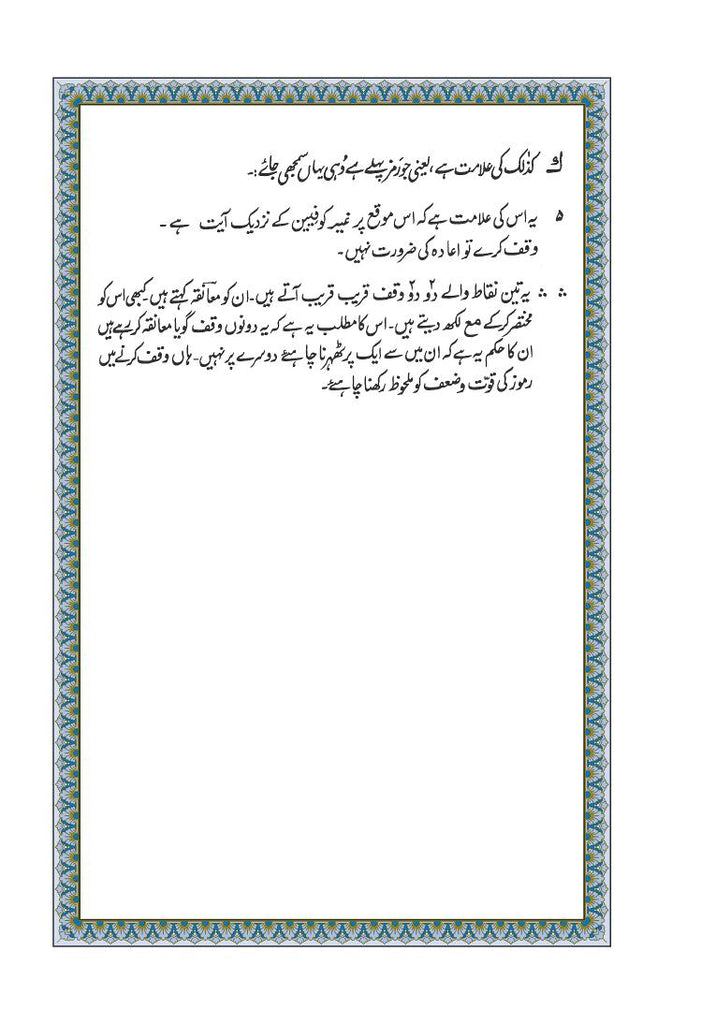 ك کذٰلک کی علامت ہے، یعنی جو رَمز پہلے ہے وُہی یہاں سمجھی جائے :۔
۵ یہ اس کی علامت ہے کہ اس موقع پر غیر کوفیین کے نزدیک آیت ہے ۔
وقف کرے تو اعادہ کی ضرورت نہیں۔
∴ ∴ یہ تین نقاط والے دٗو دٗو وقف قریب قریب آتے ہیں۔ ان کو معانقہ کہتے ہیں۔ کبھی اس کو
مختصر کرکے مع لکھ دیتے ہیں۔ اس کا مطلب یہ ہے کہ یہ دونوں وقف گویا معانقہ کر رہے ہیں
ان کا حکم یہ ہے کہ ان میں سے ایک پر ٹھہرنا چاہئے دوسرے پر نہیں۔ ہاں وقف کرنے میں
رموز کی قوّت وضعف کو ملحوظ رکھنا چاہئے۔